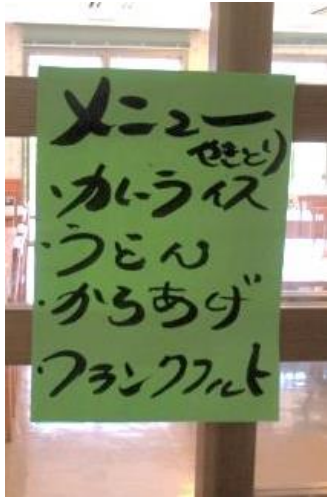 メニュー
やきとり
・カレーライス
・うどん
・からあげ
・フランクフルト